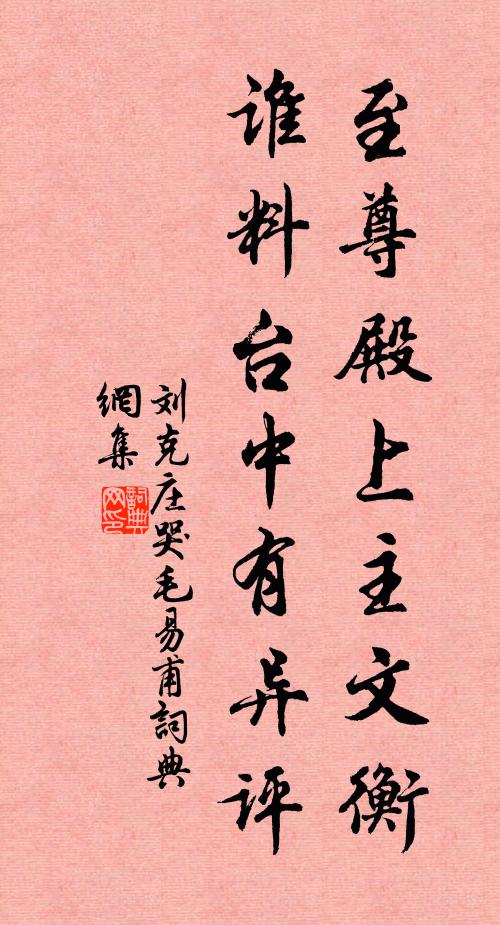 至尊殿上主文衡
谁料台中有异评
刘克庄哭毛易甫詞典
網集
詞典
网印